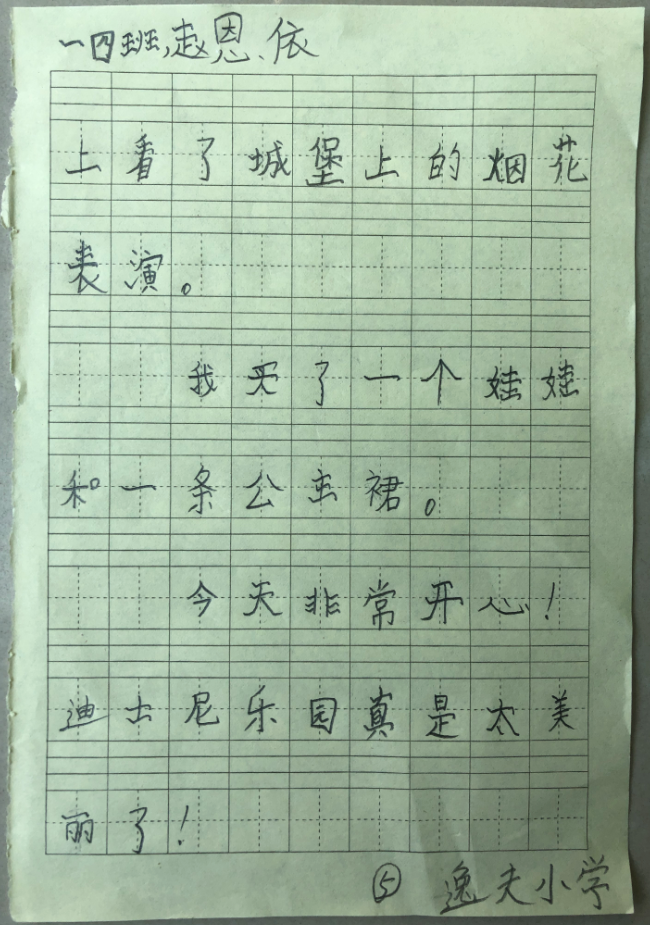 一四班,赵恩依
上看了城堡上的烟花
表演。
我买了一个娃娃
和一条公主裙。
今天非常开心!
迪士尼乐园真是太美
丽了!
⑤ 逸夫小学